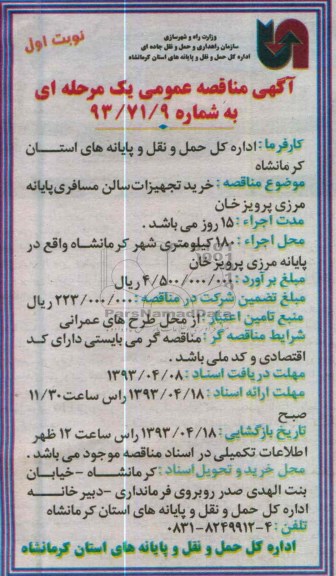 وزارت راه و شهرسازی
سازمان راهداری و حمل و نقل جاده ای
اداره کل حمل و نقل و پایانه های استان کرمانشاه
نوبت اول
آگهی مناقصه عمومی یک مرحله ای
به شماره ۹۳/۷۱/۹
کارفرما : اداره کل حمل و نقل و پایانه های استان
کرمانشاه
موضوع مناقصه : خرید تجهیزات سالن مسافری پایانه
مرزی پرویز خان
مدت اجراء : ۱۵ روز می باشد .
محل اجراء : ۱۸۰ کیلومتری شهر کرمانشاه واقع در
پایانه مرزی پرویز خان
مبلغ برآورد : ۴/۵۰۰/۰۰۰/۰۰۰ ریال
مبلغ تضمین شرکت در مناقصه : ۲۲۳/۰۰۰/۰۰۰ ریال
منبع تامین اعتبار : از محل طرح های عمرانی
شرایط مناقصه گر : مناقصه گر می بایستی دارای کد
اقتصادی و کد ملی باشد .
مهلت دریافت اسناد : ۱۳۹۳/۰۴/۰۸
مهلت ارائه اسناد : ۱۳۹۳/۰۴/۱۸ راس ساعت ۱۱/۳۰
صبح
تاریخ بازگشایی : ۱۳۹۳/۰۴/۱۸ راس ساعت ۱۲ ظهر
اطلاعات تکمیلی در اسناد مناقصه موجود می باشد .
محل خرید و تحویل اسناد : کرمانشاه - خیابان
بنت الهدی صدر روبروی فرمانداری - دبیر خانه
اداره کل حمل و نقل و پایانه های استان کرمانشاه
تلفن : ۴-۸۲۴۹۹۱۲-۰۸۳۱
اداره کل حمل و نقل و پایانه های استان کرمانشاه